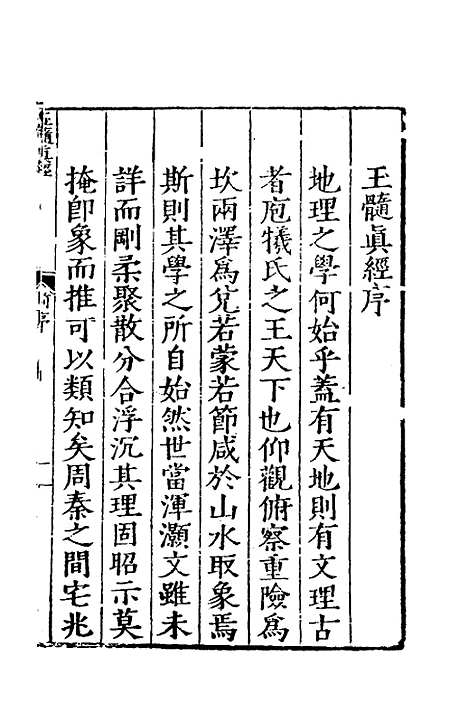 玉髓眞經序
地理之學何始乎蓋有天地則有文理古
者庖犧氏之王天下也仰觀俯察重險爲
坎兩澤爲兌若蒙若節咸於山水取象焉
斯則其學之所自始然世當渾灝文雖未
詳而剛柔聚散分合浮沉其理固昭示莫
掩卽象而推可以類知矣周秦之間宅兆
玉髓眞經
前序
一